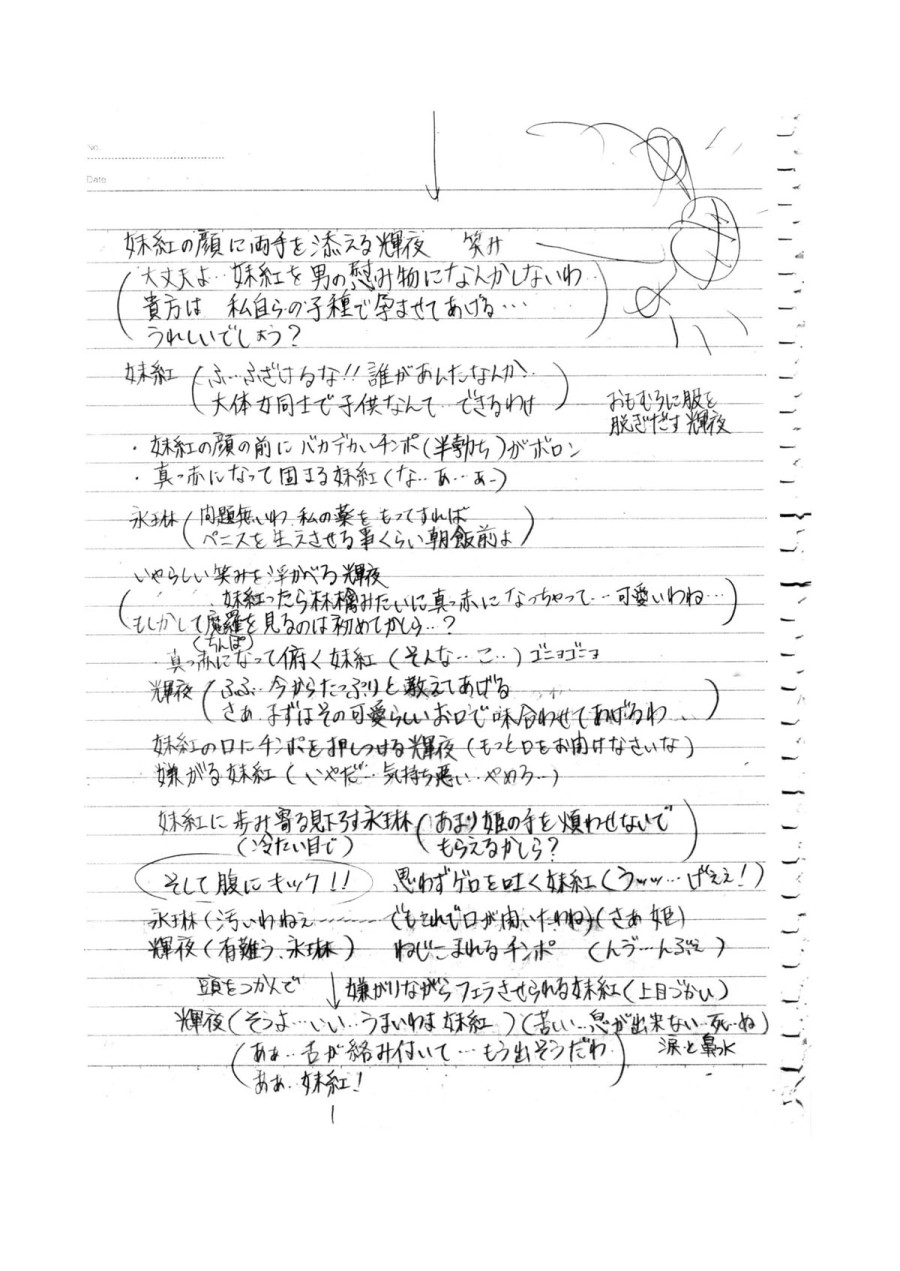 No.
Date
妹紅の顔に両手を添える輝夜 笑み
(大丈夫よ‥妹紅を男の慰み物になんかしないわ‥
貴方は 私自らの子種で孕ませてあげる…
うれしいでしょう?)
妹紅 (ふ…ふざけるな!!誰があんたなんか‥
大体女同士で子供なんて‥できるわけ)
おもむろに服を
脱ぎだす輝夜
・妹紅の顔の前にバカデカいチンポ(半勃ち)がボロン
・真っ赤になって固まる妹紅(な‥あ…あー)
永琳(問題無いわ 私の薬をもってすれば
ペニスを生えさせる事くらい朝飯前よ)
いやらしい笑みを浮かべる輝夜
(妹紅ったら林檎みたいに真っ赤になっちゃって…可愛いわね…
もしかして魔羅を見るのは初めてかしら…?)
(ちんぽ)
・真っ赤になって俯く妹紅(そんな…こ‥)ゴニョゴニョ
輝夜(ふふ‥今からたっぷりと教えてあげる
さぁ まずはその可愛らしいお口で味合わせてあげるわ…)
妹紅の口にチンポを押しつける輝夜(もっと口をお開けなさいな)
嫌がる妹紅(いやだ…気持ち悪い‥やめろ…)
妹紅に歩み寄る見下ろす永琳(あまり姫の手を煩わせないで
(冷たい目で) もらえるかしら?)
そして腹にキック!! 思わずゲロを吐く妹紅(うッッ…げぇぇ!)
永琳(汚いわねぇ………でもこれで口が開いたわね)(さあ 姫)
輝夜(有難う、永琳) ねじこまれるチンポ (んヴ…んぶぇ)
頭をつかんで ↓嫌がりながらフェラさせられる妹紅(上目づかい)
輝夜(そうよ…いい‥うまいわぁ妹紅)(苦しい…息が出来ない‥死‥ぬ)
(あぁ…舌が絡み付いて…もう出そうだわ 涙と鼻水
あぁ‥妹紅!)